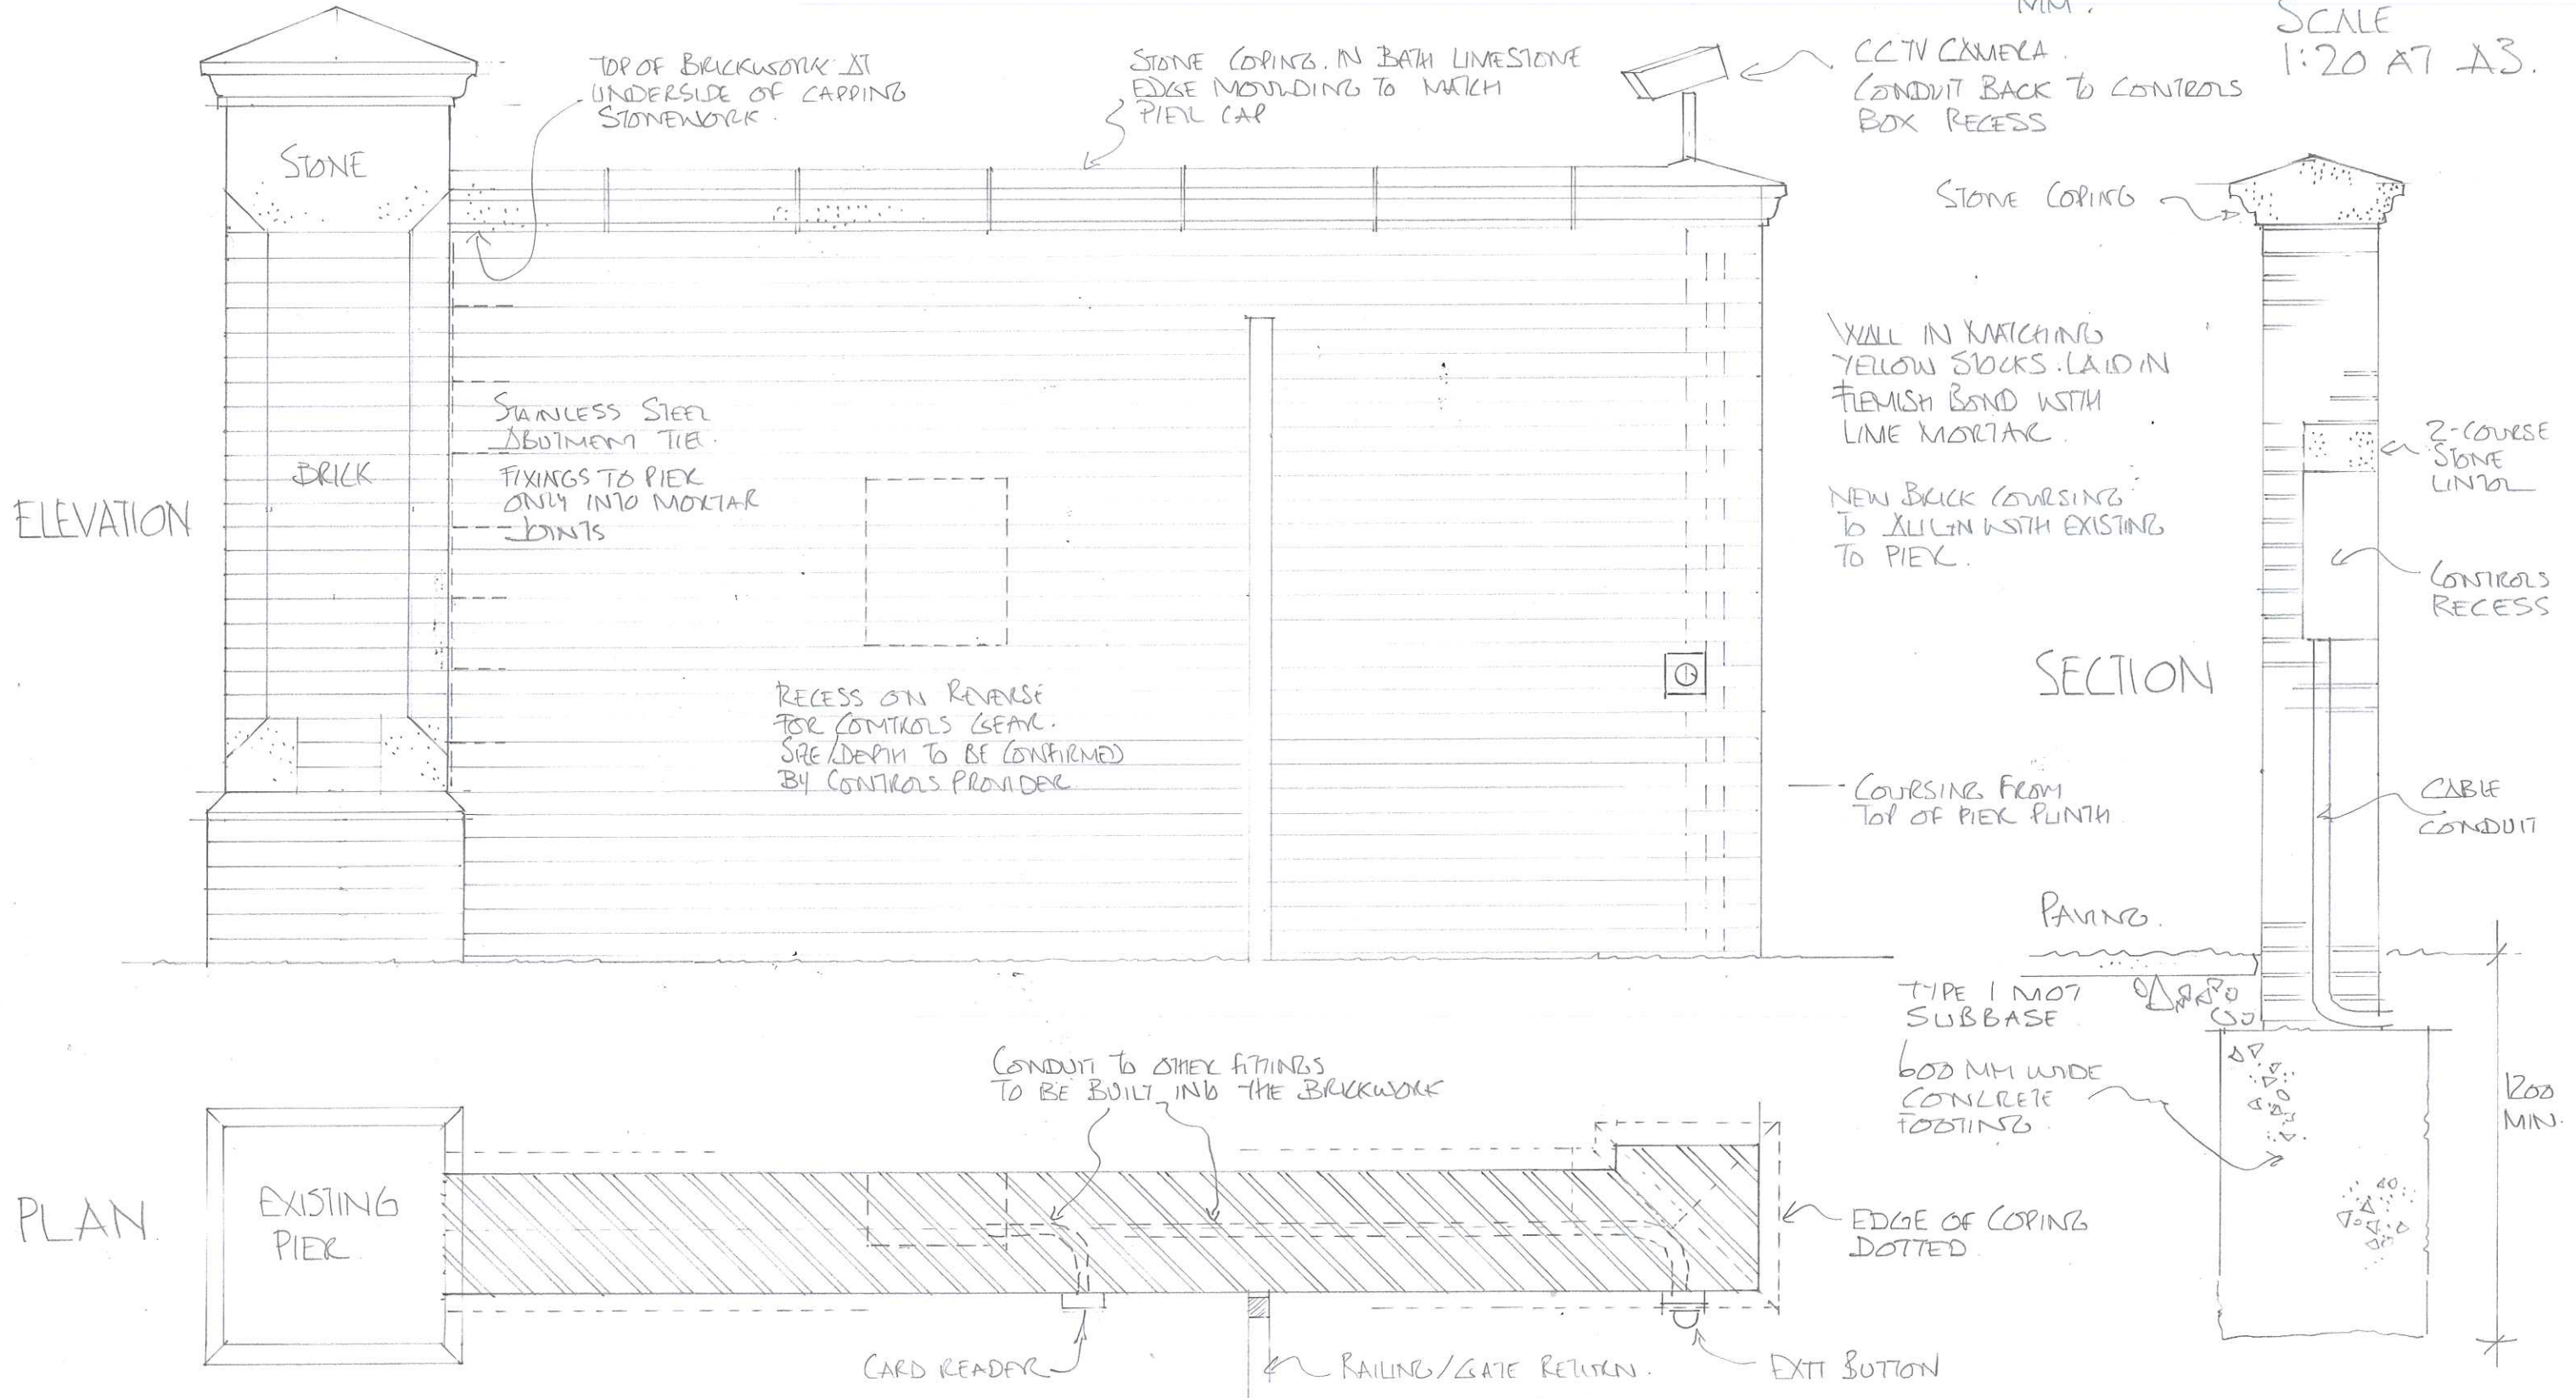 MM.
SCALE
1:20 AT A3.
TOP OF BRICKWORK AT
UNDERSIDE OF CAPPING
STONEWORK.
STONE COPING. IN BATH LIMESTONE
EDGE MOULDING TO MATCH
PIER CAP
CCTV CAMERA.
CONDUIT BACK TO CONTROLS
BOX RECESS
STONE
STONE COPING
WALL IN MATCHING
YELLOW STOCKS. LAID IN
FLEMISH BOND WITH
LIME MORTAR.
STAINLESS STEEL
ABUTMENT TIE.
FIXINGS TO PIER
ONLY INTO MORTAR
JOINTS
BRICK
2-COURSE
STONE
LINTOL
NEW BRICK COURSING
TO ALIGN WITH EXISTING
TO PIER.
ELEVATION
CONTROLS
RECESS
SECTION
RECESS ON REVERSE
FOR CONTROLS GEAR.
SIZE/DEPTH TO BE CONFIRMED
BY CONTROLS PROVIDER
COURSING FROM
TOP OF PIER PLINTH
CABLE
CONDUIT
PAVING.
TYPE 1 MOT
SUBBASE
600 MM WIDE
CONCRETE
FOOTING
1200
MIN.
CONDUIT TO OTHER FITTINGS
TO BE BUILT INTO THE BRICKWORK
PLAN.
EXISTING
PIER
EDGE OF COPING
DOTTED
CARD READER
RAILING/GATE RETURN.
EXIT BUTTON